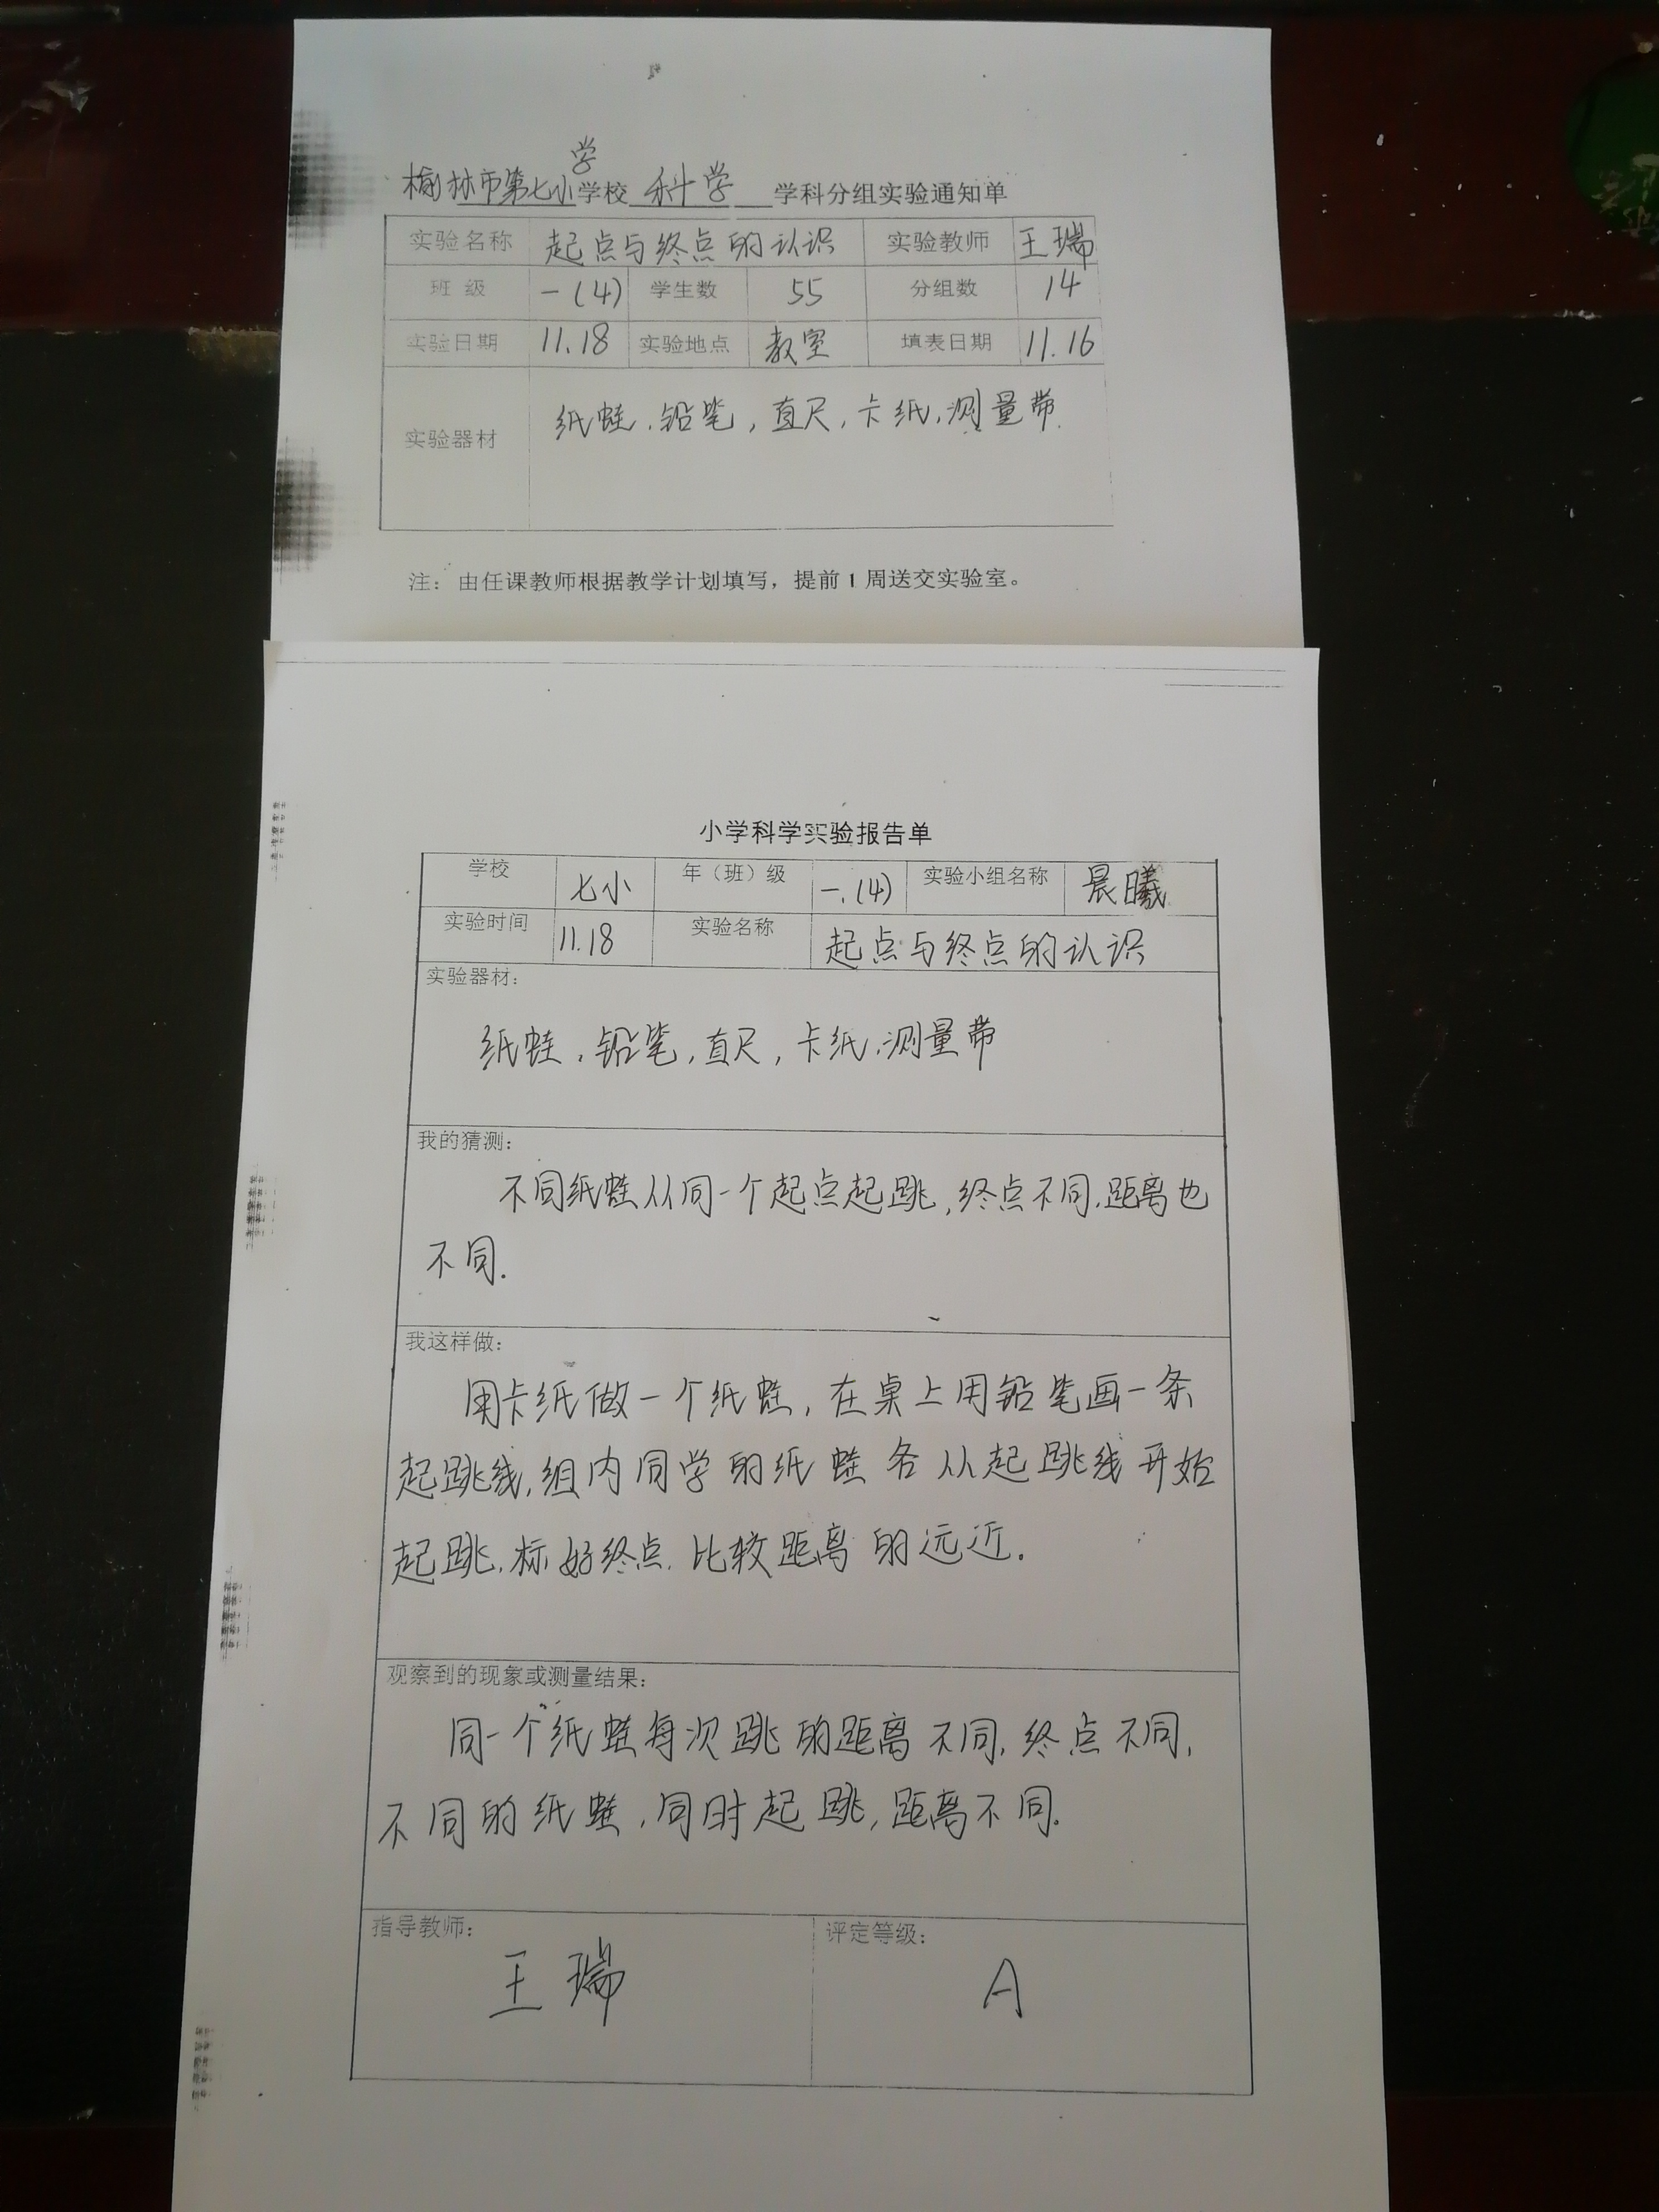 学
榆林市第七小学校 科学 学科分组实验通知单
实验名称 起点与终点的认识 实验教师 王瑞
班 级 一(4) 学生数 55 分组数 14
实验日期 11.18 实验地点 教室 填表日期 11.16
实验器材 纸蛙,铅笔,直尺,卡纸,测量带.
注:由任课教师根据教学计划填写,提前1周送交实验室。
小学科学实验报告单
学校 七小 年(班)级 一.(4) 实验小组名称 晨曦
实验时间 11.18 实验名称 起点与终点的认识
实验器材:
纸蛙,铅笔,直尺,卡纸,测量带
我的猜测:
不同纸蛙从同一个起点起跳,终点不同,距离也
不同.
我这样做:
用卡纸做一个纸蛙,在桌上用铅笔画一条
起跳线,组内同学的纸蛙各从起跳线开始
起跳,标好终点.比较距离的远近.
观察到的现象或测量结果:
同一个纸蛙每次跳的距离不同,终点不同,
不同的纸蛙,同时起跳,距离不同.
指导教师: 王瑞 评定等级: A